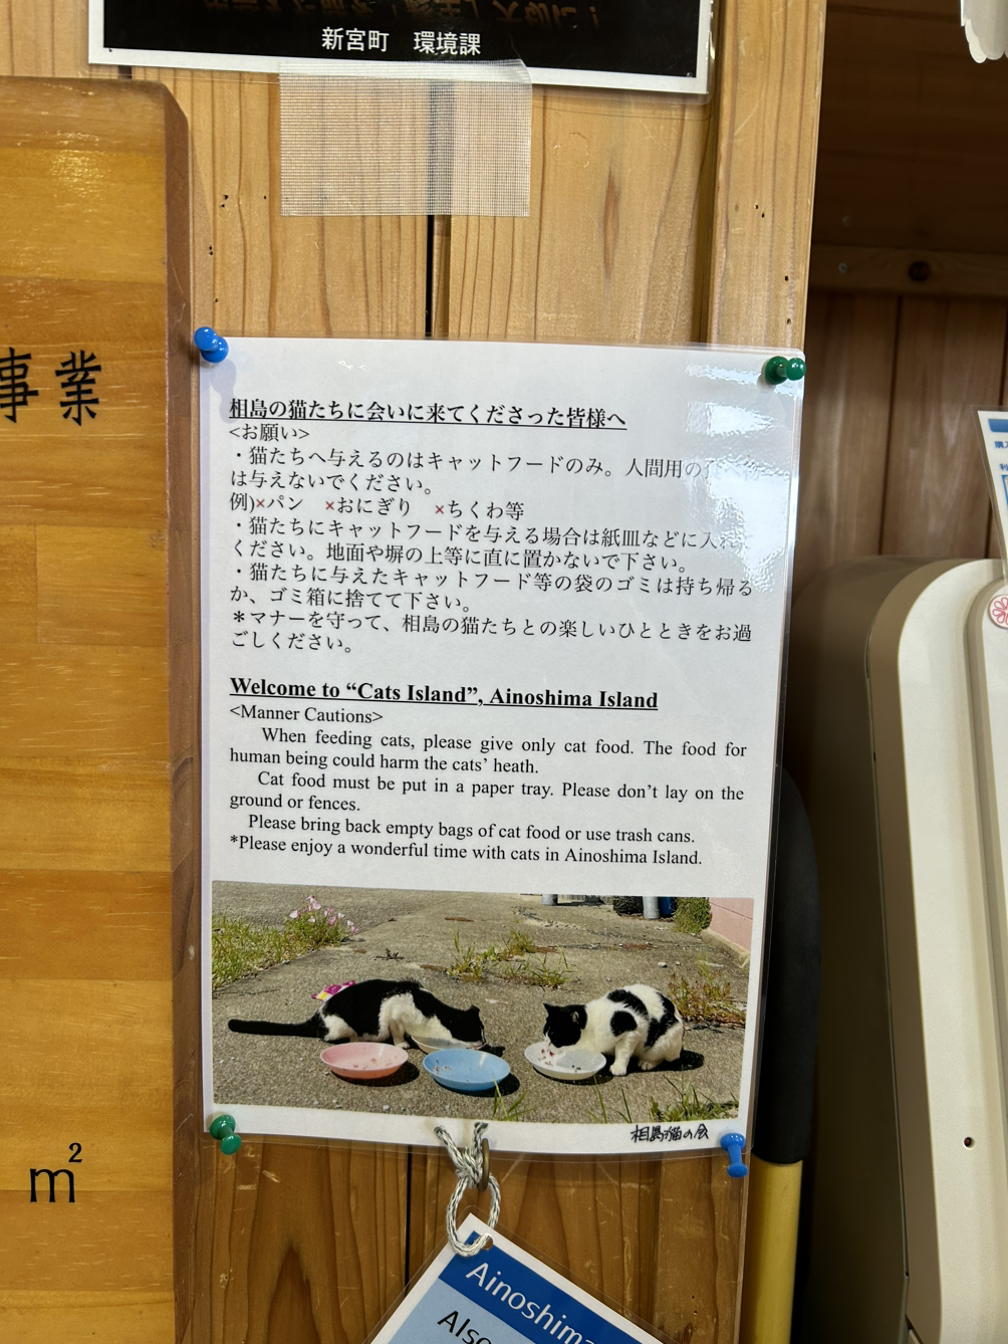 新宮町 環境課
事業
相島の猫たちに会いに来てくださった皆様へ
<お願い>
・猫たちへ与えるのはキャットフードのみ。人間用の
は与えないでください。
例)×パン ×おにぎり ×ちくわ等
・猫たちにキャットフードを与える場合は紙皿などに入れ
ください。地面や塀の上等に直に置かないで下さい。
・猫たちに与えたキャットフード等の袋のゴミは持ち帰る
か、ゴミ箱に捨てて下さい。
＊マナーを守って、相島の猫たちとの楽しいひとときをお過
ごしください。
Welcome to “Cats Island”, Ainoshima Island
<Manner Cautions>
When feeding cats, please give only cat food. The food for
human being could harm the cats’ heath.
Cat food must be put in a paper tray. Please don’t lay on the
ground or fences.
Please bring back empty bags of cat food or use trash cans.
*Please enjoy a wonderful time with cats in Ainoshima Island.
相島猫の会
m²
Ainoshima
Also